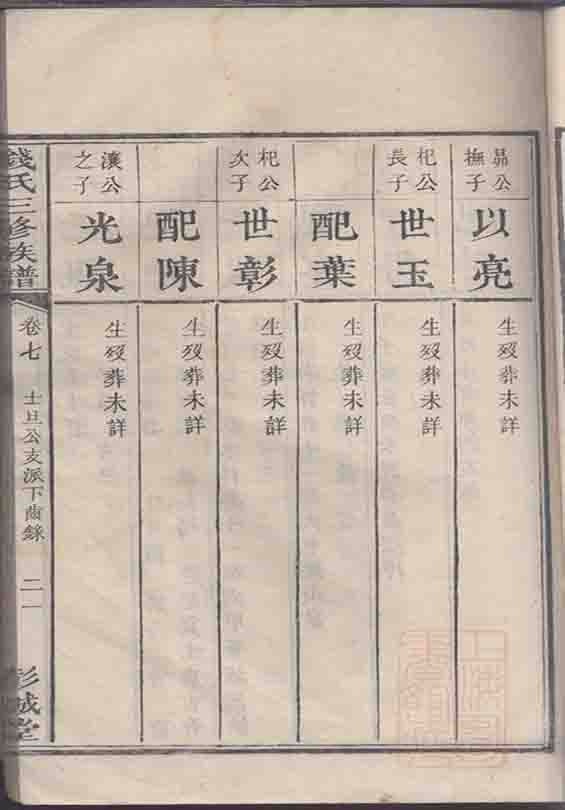 昴公
撫子
以亮
生歿葬未詳
杞公
長子
世玉
生歿葬未詳
配葉
生歿葬未詳
杞公
次子
世彰
生歿葬未詳
配陳
生歿葬未詳
瀼公
之子
光泉
生歿葬未詳
錢氏三修族譜
卷七
士旦公支派下齒錄
二一
彭城堂